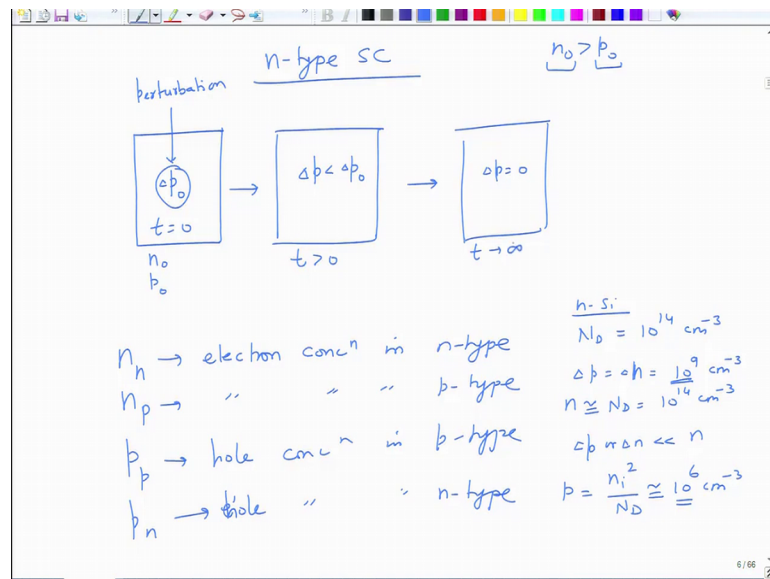 B I
n-type SC
n₀ > p₀
perturbation
Δp₀
t=0
n₀
p₀
Δp < Δp₀
t>0
Δp=0
t→∞
nₙ → electron concⁿ in n-type
nₚ → " " " p-type
pₚ → hole concⁿ in p-type
pₙ → hole " " n-type
n-Si
N_D = 10¹⁴ cm⁻³
Δp = Δn = 10⁹ cm⁻³
n ≅ N_D = 10¹⁴ cm⁻³
Δp or Δn << n
p = nᵢ²/N_D ≅ 10⁶ cm⁻³
6 / 66